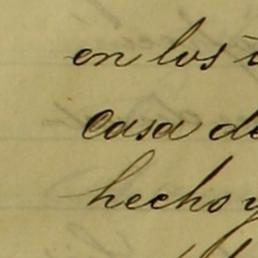 en los
casa de
hecho y